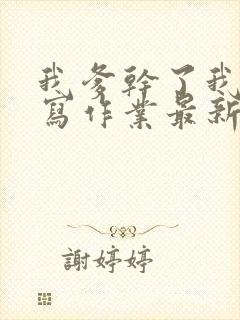 我爹幹了我
寫作業最新
謝婷婷